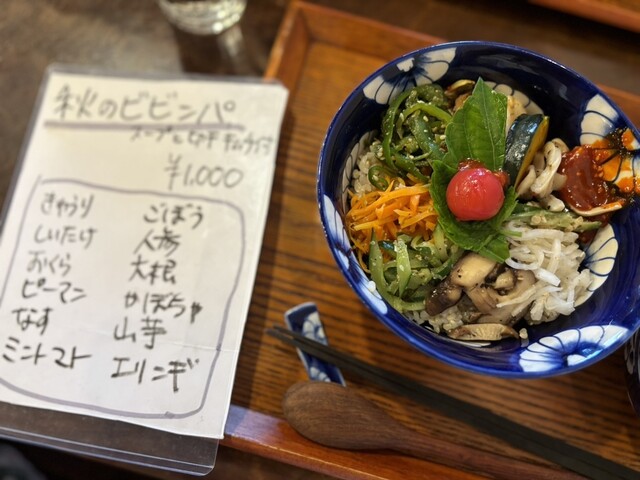 秋のビビンパ
スープ セット
¥1,000
きゅうり ごぼう
しいたけ 人参
おくら 大根
ピーマン かぼちゃ
なす 山芋
ミニトマト エリンギ